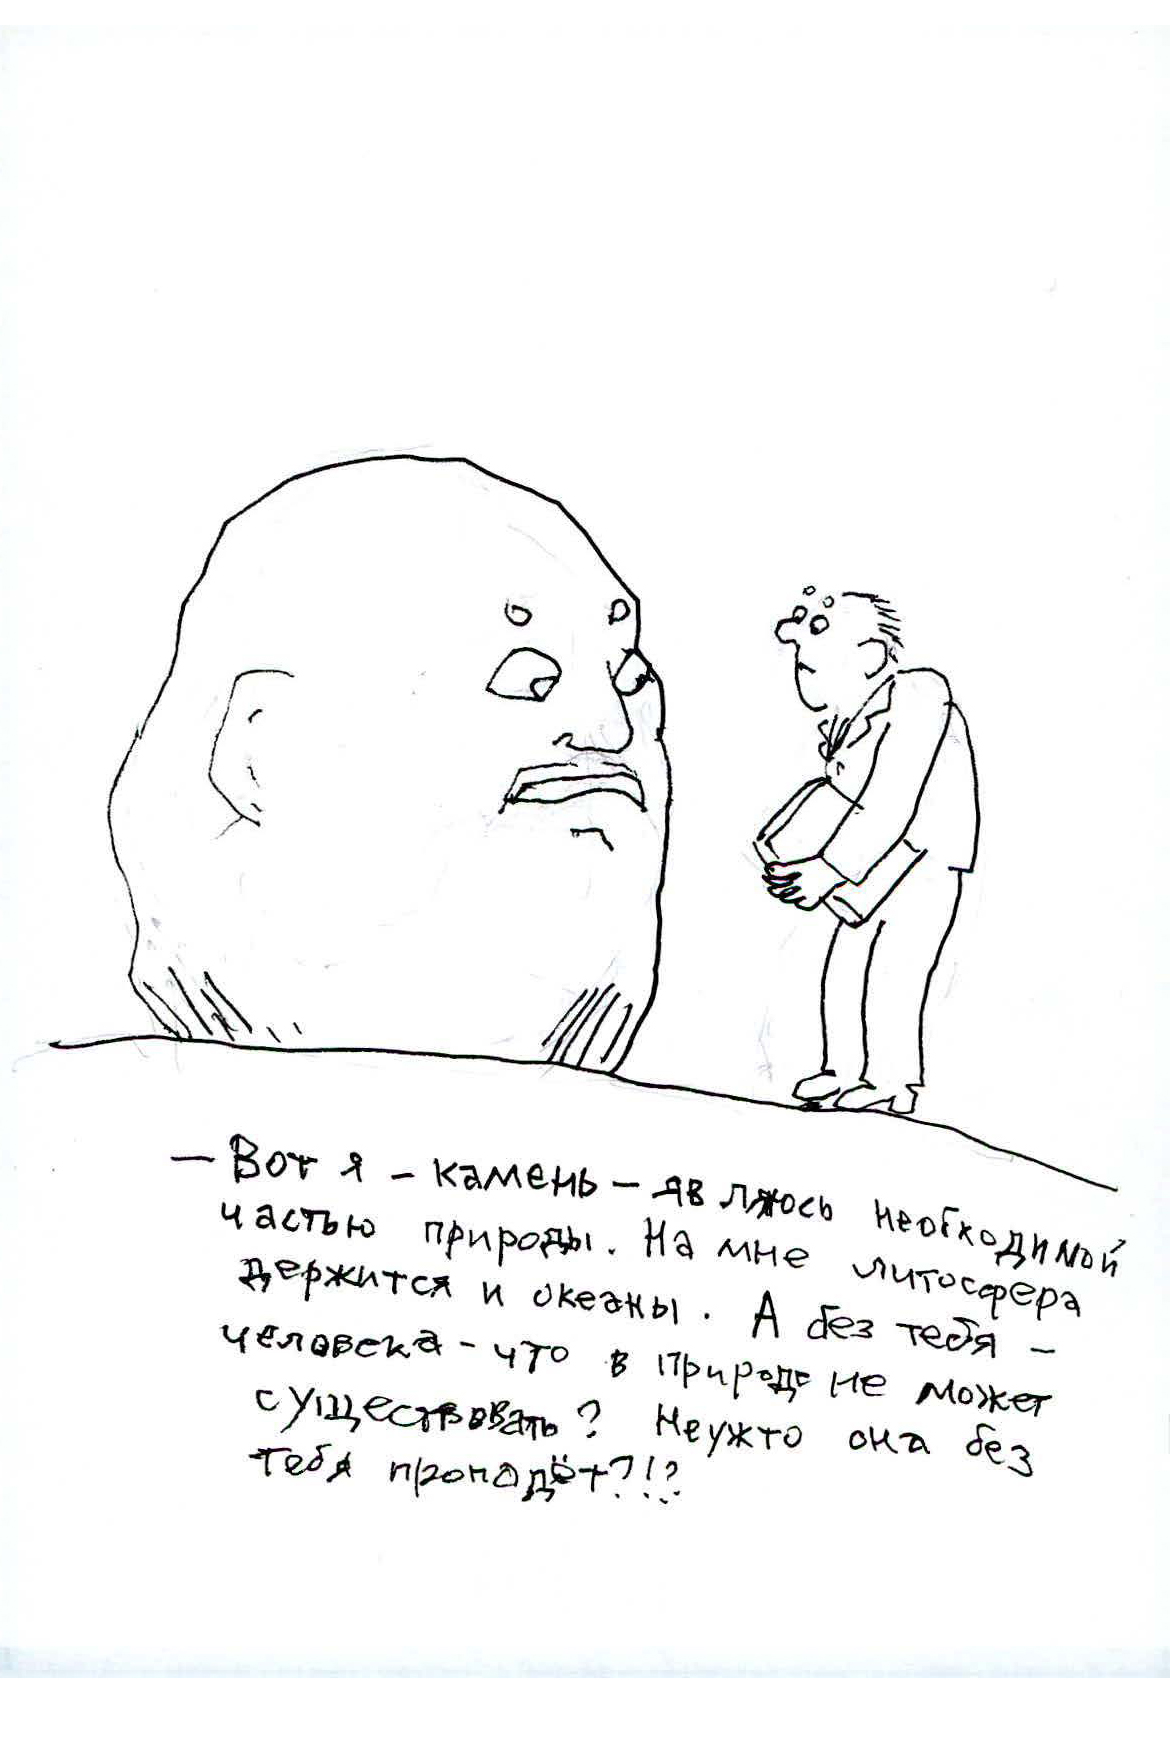 — Вот я – камень – являюсь необходимой
частью природы. На мне литосфера
держится и океаны. А без тебя –
человека – что в природе не может
существовать? Неужто она без
тебя пропадёт?!?